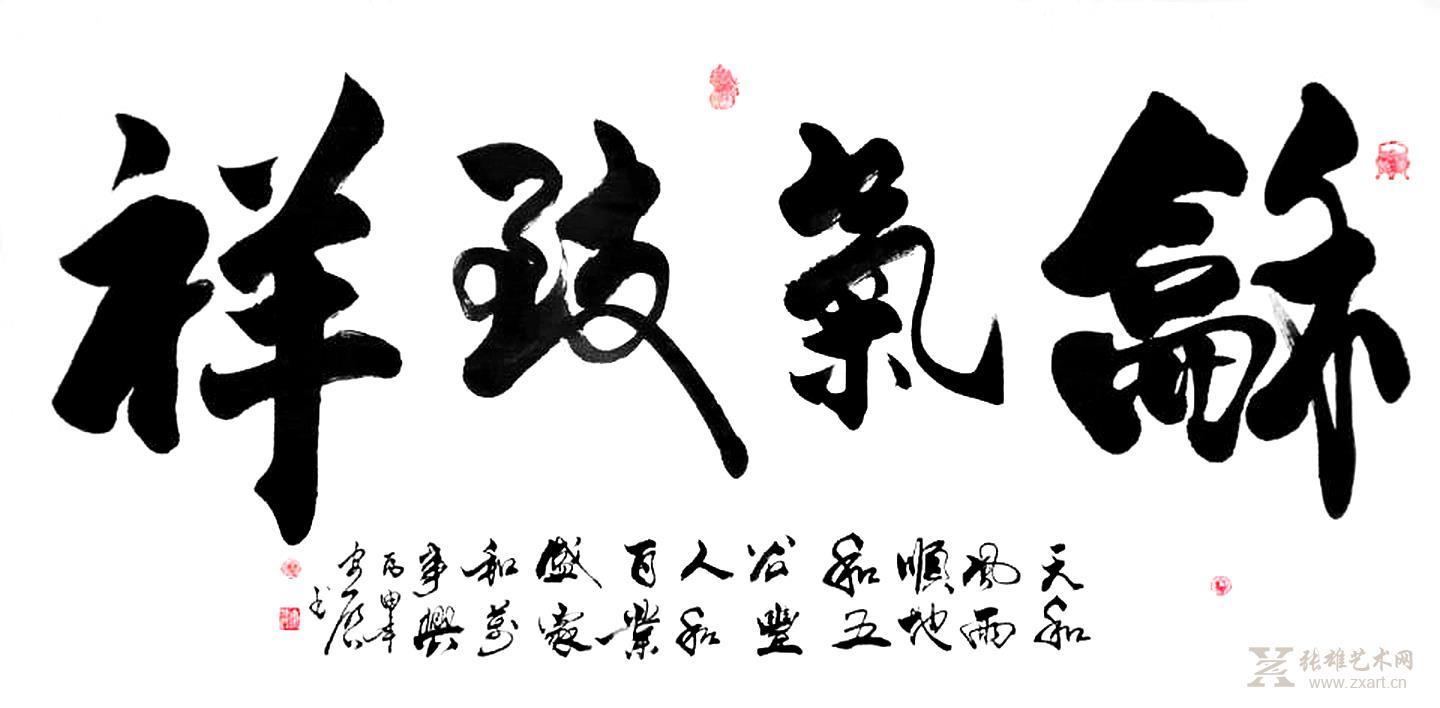 龢氣致祥
天和
風雨
順地
和五
谷豐
人和
百業
盛家
和萬
事興
丙申年
书
张雄艺术网
www.zxart.cn